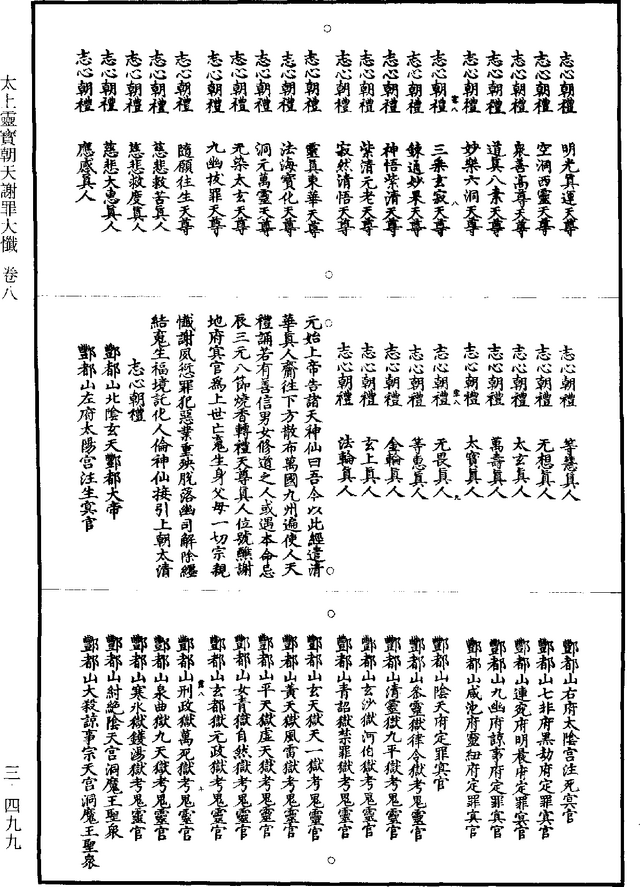 太上靈寶朝天謝罪大懺 卷八
三·四九九
志心朝禮 明光昇運天尊
志心朝禮 空洞西靈天尊
志心朝禮 衆善高尊天尊
志心朝禮 道真八素天尊
志心朝禮 妙樂六洞天尊
志心朝禮 三乘玄寂天尊
志心朝禮 鍊道妙果天尊
志心朝禮 神悟紫清天尊
志心朝禮 紫清元老天尊
志心朝禮 寂然清悟天尊
志心朝禮 靈真東華天尊
志心朝禮 法海寶化天尊
志心朝禮 洞元萬靈天尊
志心朝禮 无染太玄天尊
志心朝禮 九幽拔罪天尊
志心朝禮 隨願往生天尊
志心朝禮 慈悲救苦真人
志心朝禮 慈悲救度真人
志心朝禮 慈悲大惠真人
志心朝禮 應感真人
志心朝禮 等慈真人
志心朝禮 无想真人
志心朝禮 太玄真人
志心朝禮 萬壽真人
志心朝禮 太寶真人
志心朝禮 无畏真人
志心朝禮 等惠真人
志心朝禮 金輪真人
志心朝禮 玄上真人
志心朝禮 法輪真人
元始上帝告諸天神仙曰吾今以此經遣清
華真人齎往下方散布萬國九州遍使人天
禮誦若有善信男女修道之人或遇本命忌
辰三元八節燒香轉禮天尊真人位號醮謝
地府冥官為上世亡䰟生身父母一切宗親
懺謝夙愆罪犯惡業重殃脫落幽司解除纏
結䰟生福境託化人倫神仙接引上朝太清
志心朝禮
酆都山北陰玄天酆都大帝
酆都山左府太陽宮注生冥官
酆都山右府太陰宮注死冥官
酆都山七非府黑劫府定罪冥官
酆都山連宛府明晨府定罪冥官
酆都山九幽府諒事府定罪冥官
酆都山咸池府靈紐府定罪冥官
酆都山陰天府定罪冥官
酆都山岱靈獄律令獄考鬼靈官
酆都山清靈獄九平獄考鬼靈官
酆都山玄沙獄河伯獄考鬼靈官
酆都山青詔獄禁罪獄考鬼靈官
酆都山玄天獄天一獄考鬼靈官
酆都山黃天獄風雷獄考鬼靈官
酆都山平天獄虛天獄考鬼靈官
酆都山女青獄自然獄考鬼靈官
酆都山玄都獄元政獄考鬼靈官
酆都山刑政獄萬死獄考鬼靈官
酆都山泉曲獄九天獄考鬼靈官
酆都山寒冰獄鑊湯獄考鬼靈官
酆都山紂絕陰天宮洞魔王聖衆
酆都山大殺諒事宗天宮洞魔王聖衆